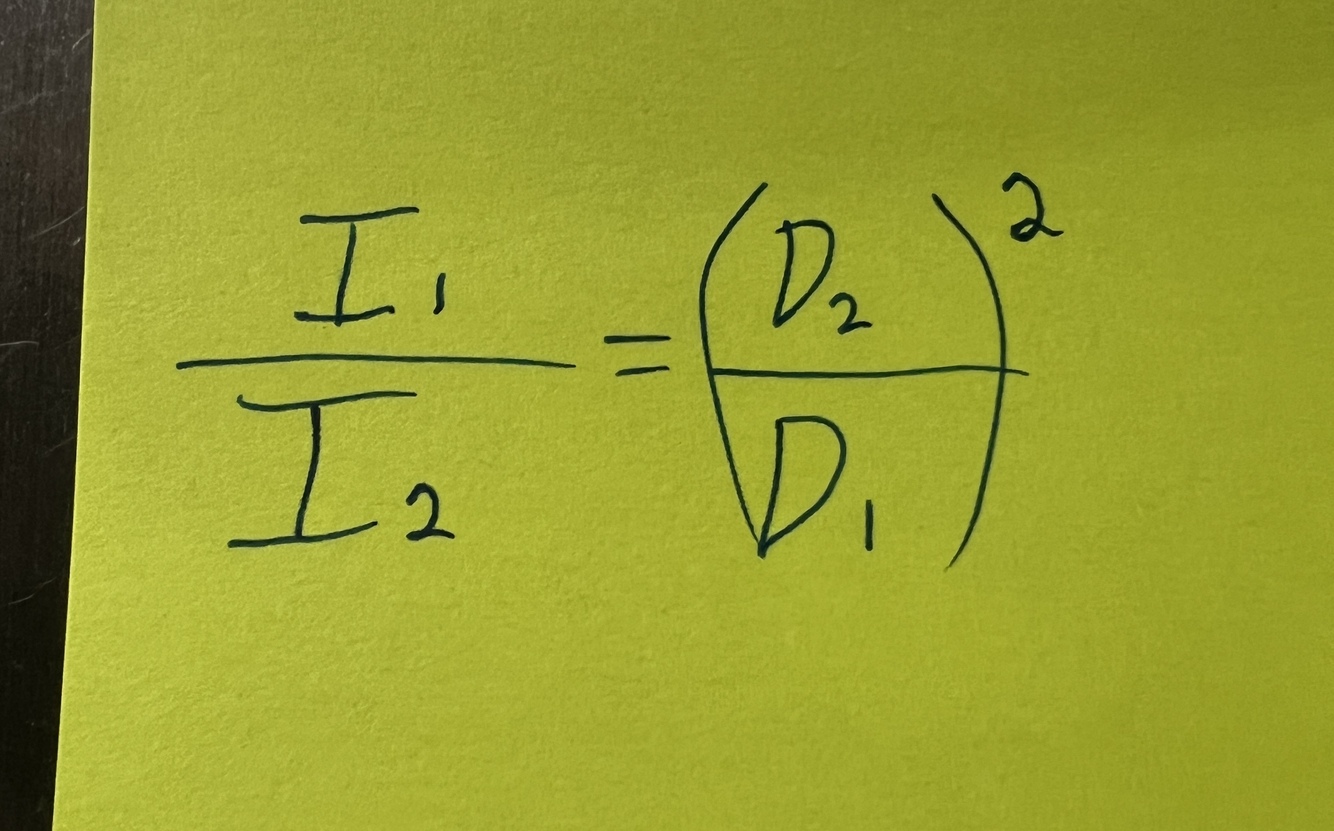 I₁/I₂ = (D₂/D₁)²